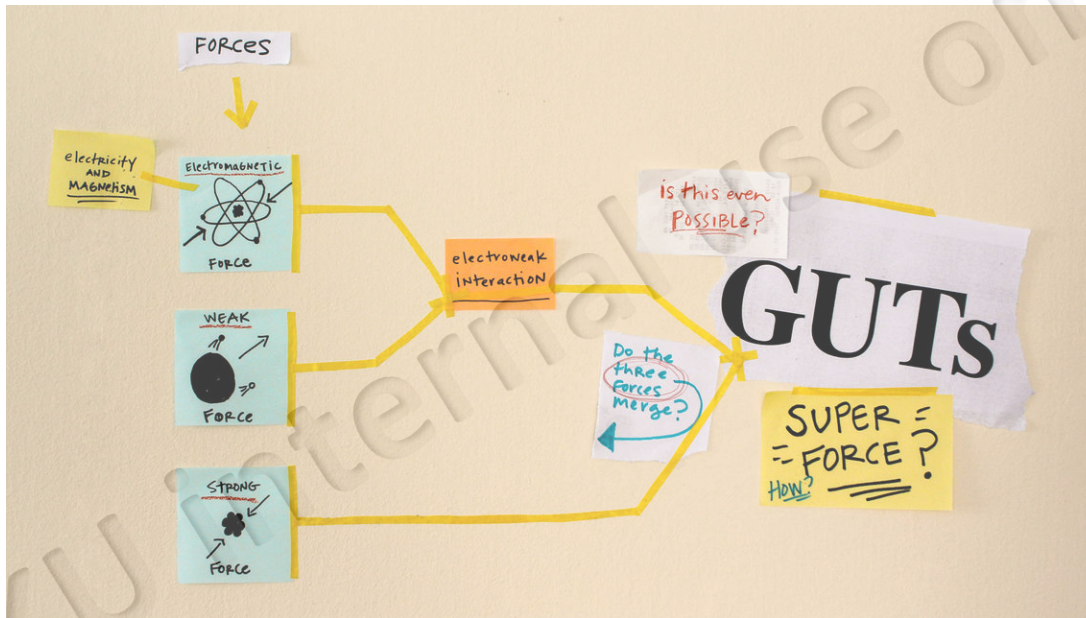 FORCES
electricity
AND
MAGNETISM
ELECTROMAGNETIC
FORCE
WEAK
FORCE
STRONG
FORCE
electroweak
INTERACTION
is this even
POSSIBLE?
GUTs
Do the
three
forces
merge?
SUPER
FORCE?
HOW?
ru internal use on